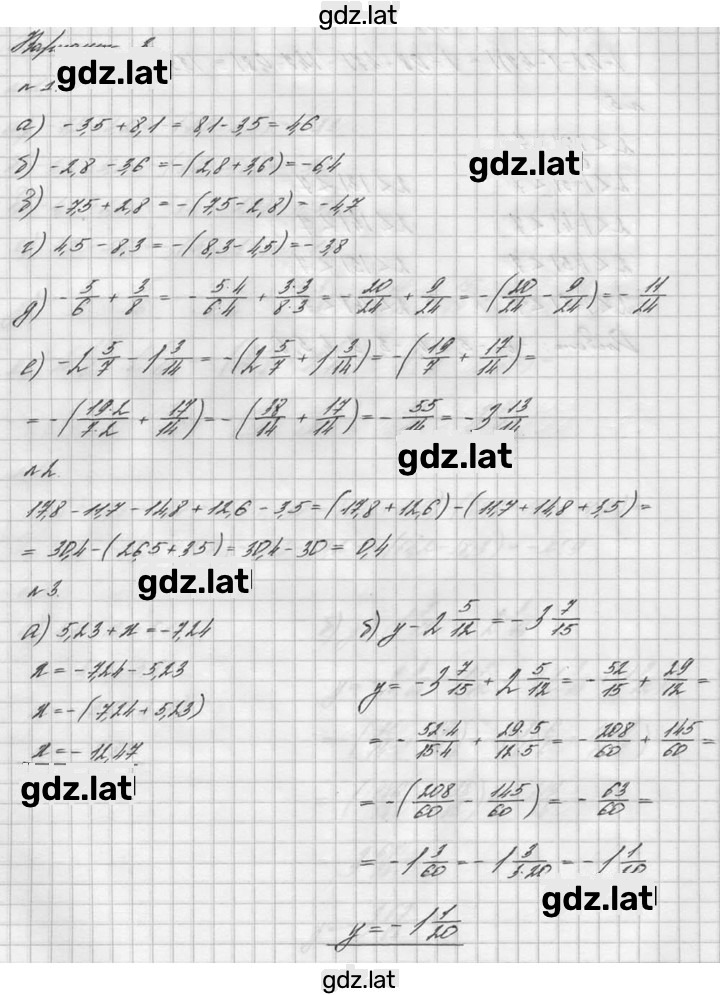 gdz.lat
Вариант
gdz.lat
№ 1.
а) -3,5 + 8,1 = 8,1 - 3,5 = 4,6
б) -2,8 - 3,6 = -(2,8 + 3,6) = -6,4
gdz.lat
в) -7,5 + 2,8 = -(7,5 - 2,8) = -4,7
г) 4,5 - 8,3 = -(8,3 - 4,5) = -3,8
д) -5/6 + 3/8 = -5·4/6·4 + 3·3/8·3 = -20/24 + 9/24 = -(20/24 - 9/24) = -11/24
е) -2 5/7 - 1 3/14 = -(2 5/7 + 1 3/14) = -(19/7 + 17/14) =
= -(19·2/7·2 + 17/14) = -(38/14 + 17/14) = -55/14 = -3 13/14
gdz.lat
№ 2.
17,8 - 11,7 - 14,8 + 12,6 - 3,5 = (17,8 + 12,6) - (11,7 + 14,8 + 3,5) =
= 30,4 - (26,5 + 3,5) = 30,4 - 30 = 0,4
gdz.lat
№ 3.
а) 5,23 + x = -7,24
x = -7,24 - 5,23
x = -(7,24 + 5,23)
x = -12,47
gdz.lat
б) y - 2 5/12 = -3 7/15
y = -3 7/15 + 2 5/12 = -52/15 + 29/12 =
= -52·4/15·4 + 29·5/12·5 = -208/60 + 145/60 =
= -(208/60 - 145/60) = -63/60 =
= -1 3/60 = -1 3/3·20 = -1 1/20
gdz.lat
y = -1 1/20
gdz.lat